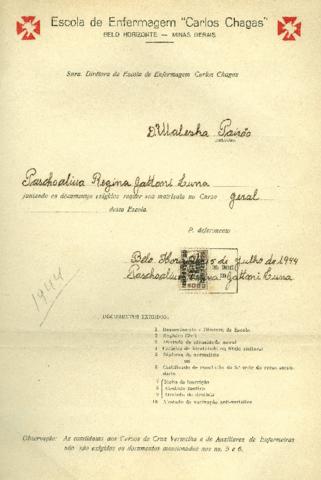 Escola de Enfermagem "Carlos Chagas"
BELO HORIZONTE — MINAS GERAIS
Snra. Diretora da Escola de Enfermagem Carlos Chagas
D. Waleska Paixão
Paschoalina Regina Gattoni Luna
juntando os documentos exigidos requer sua matrícula no Curso geral
desta Escola.
P. deferimento
Belo Horizonte, 5 de Julho de 1944
Paschoalina Gattoni Luna
1944
DOCUMENTOS EXIGIDOS:
1 Requerimento a Diretora da Escola
2 Registro Civil
3 Atestado de idoneidade moral
4 Carteira de identidade ou título eleitoral
5 Diploma de normalista
ou
6 Certificado de conclusão da 5ª série do curso secundário
7 Ficha de inscrição
8 Atestado médico
9 Atestado do dentista
10 Atestado de vacinação anti-variólica
Observação: As candidatas aos Cursos da Cruz Vermelha e de Auxiliares de Enfermeiras
não são exigidos os documentos mencionados nos nos. 5 e 6.